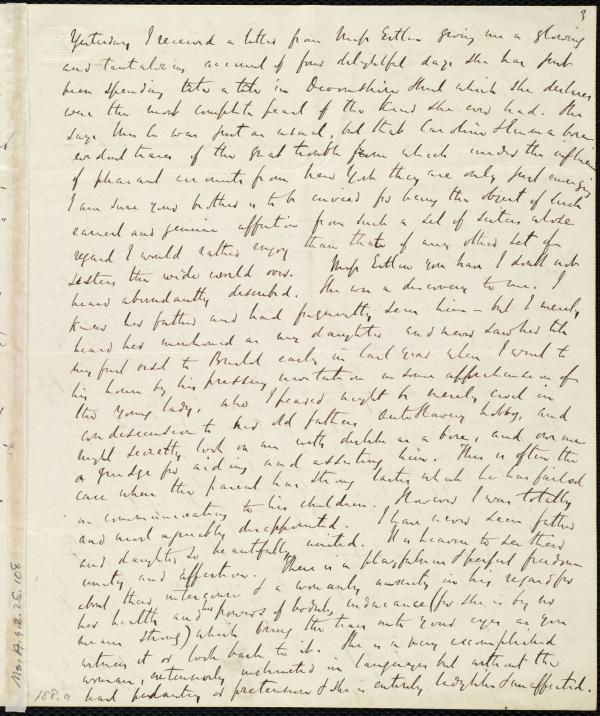 3
Yesterday I received a letter from Miss Estlin giving me a glowing
and tantalizing account of four delightful days she has just
been spending tete a tete in Devonshire Street which she declares
was the most complete feast of the kind she ever had. She
says Mrs C was just as usual, but that Caroline & Emma bore
evident traces of the great trouble from which under the influence
of pleasant accounts from New York they are only just emerging
I am sure your brother is to be envied for being the object of such
earnest and genuine affection from such a set of sisters whose
regard I would rather enjoy than that of any other set of
sisters the wide world over. Miss Estlin you have I doubt not
heard abundantly described. She was a discovery to me. I
knew her father and had frequently seen him - but I merely
heard her mentioned as my daughter and never saw her till
my first visit to Bristol early in last year when I went to
his house by his pressing invitation in some apprehension of
this young lady, who I feared might be merely civil in
condescension to her old father's antislavery hobby, and
might secretly look on me with dislike as a bore, and owe me
a grudge for aiding and assisting him. This is often the
case where the parent has strong tastes which he has failed
in communicating to his children. However I was totally
and most agreeably disappointed. I have never seen father
and daughter so beautifully united. It is heaven to see their
unity and affection. There is a playfulness & perfect freedom
about their intercourse & a womanly anxiety in her regard for
her health and his powers of bodily endurance (for she is by no
means strong) which bring the tears into your eyes as you
witness it or look back to it. She is a very accomplished
woman, extensively instructed in languages but without the
least pedantry or pretension & she is entirely ladylike & unaffected.
Ms. A. 9. 2. 25. 108
188.a